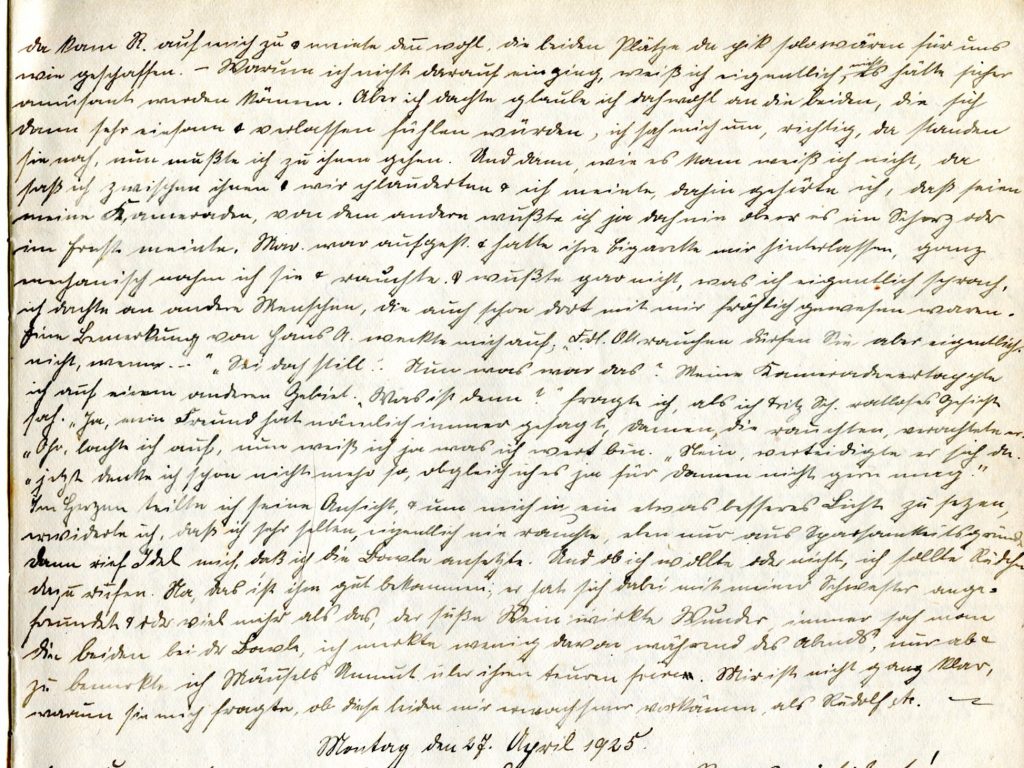 da kam R. auf mich zu & meinte du wohl. die beiden Plätze da solo wären für uns
wie geschaffen. – Warum ich nicht darauf einging, weiß ich eigentlich nicht, es hätte sicher
amüsant werden können. Aber ich dachte glaube ich doch wohl an die beiden, die sich
dann sehr einsam & verlassen fühlen würden, ich sah mich um, richtig, da standen
sie noch, nun mußte ich zu ihnen gehen. Und dann, wie es kam weiß ich nicht, da
saß ich zwischen ihnen & wir plauderten & ich meinte, dahin gehörte ich, daß seien
meine Kameraden, von dem andern wußte ich ja doch nie ob er es im Scherz oder
im Ernste meinte. Mar. war aufgest. & hatte ihre Cigarette mir hinterlassen, ganz
mechanisch nahm ich sie & rauchte. & wußte gar nicht, was ich eigentlich sprach,
ich dachte an andere Menschen, die auch schon dort mit mir fröhlich gewesen waren.
Eine Bemerkung von Hans A. weckte mich auf; „Frl. rauchen dürfen Sie aber eigentlich
nicht, wenn.– –" „Sei doch still". Nun was war das? Meine Kameraden ertappte
ich auf einem anderen Gebiet. „Was ist denn?" fragte ich, als ich Fritz Sch. ratloses Gesicht
sah. „Ja, mein Freund hat nämlich immer gesagt, Damen, die rauchten, verachtete er.
„Oh, lachte ich auf, nun weiß ich ja was ich wert bin. „Nein, verteidigte er sich da.
„jetzt denke ich schon nicht mehr so, obgleich ich es ja für Damen nicht gern mag."
Im Herzen teilte ich seine Ansicht, & um mich in ein etwas besseres Licht zu setzen
erwiderte ich, daß ich sehr selten, eigentlich nie rauchte, eben nur aus Sparsamkeitsgründen
dann rief Idel mich, daß ich die Bowle ansetzte. Und ob ich wollte oder nicht, ich sollte
dazu rufen. Na, das ist ihm gut bekommen; er hat sich dabei mit meiner Schwester ange-
freundet & oder viel mehr als das, der süße Wein wirkte Wunder, immer sah man
die beiden bei der Bowle, ich merkte wenig davon während des Abends, nur ab &
zu bemerkte ich Mäusels Unmut über ihren teuren. Mir ist nicht ganz klar,
warum sie mich fragte, ob diese beiden mir erwachsener vorkämen, als Rudolf A. –
Montag den 27. April 1925.